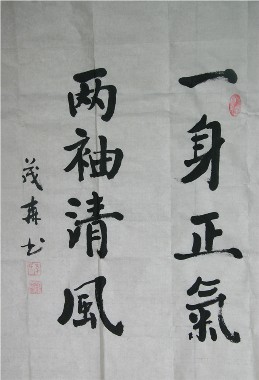 一身正氣
两袖清風
茂森书